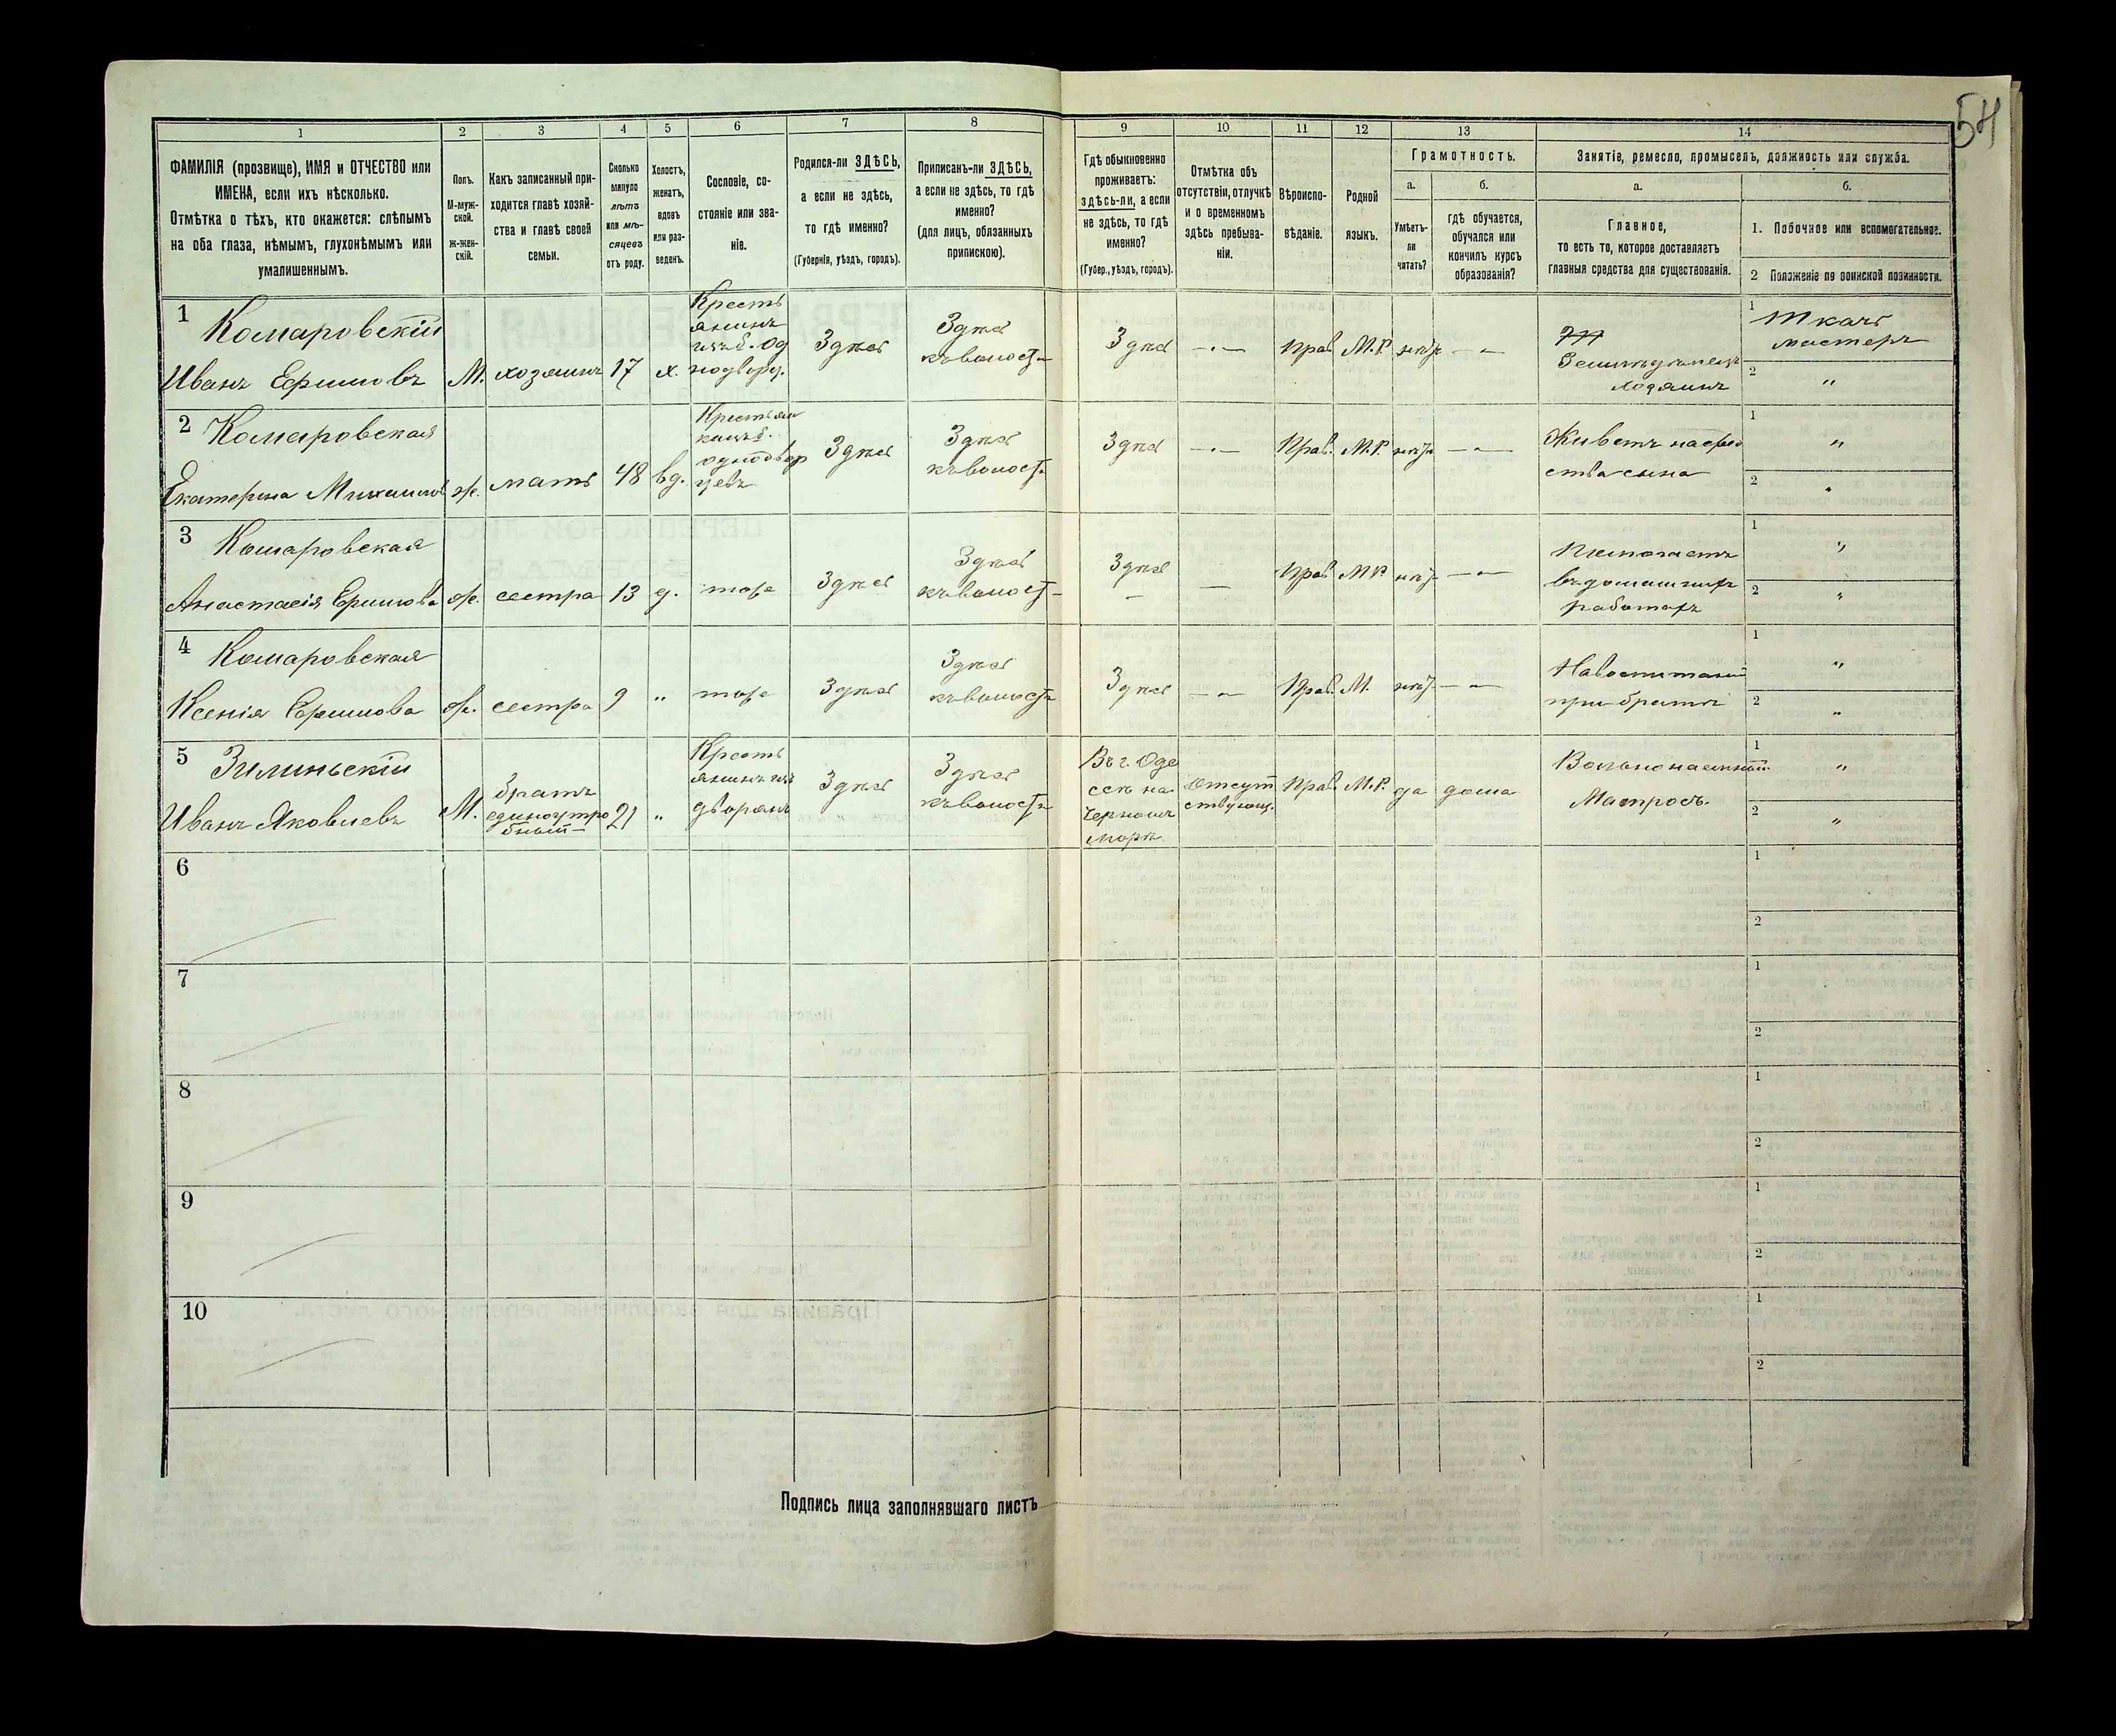 54
1 2 3 4 5 6 7 8 9 10 11 12 13 14
ФАМИЛІЯ (прозвище), ИМЯ и ОТЧЕСТВО или
ИМЕНА, если ихъ нѣсколько.
Отмѣтка о тѣхъ, кто окажется: слѣпымъ
на оба глаза, нѣмымъ, глухонѣмымъ или
умалишеннымъ.
Полъ.
М-муж-
ской.
ж-жен-
скій.
Какъ записанный при-
ходится главѣ хозяй-
ства и главѣ своей
семьи.
Сколько
минуло
лѣтъ
или мѣ-
сяцевъ
отъ роду.
Холостъ,
женатъ,
вдовъ
или раз-
веденъ.
Сословіе, со-
стояніе или зва-
ніе.
Родился-ли ЗДѢСЬ,
а если не здѣсь,
то гдѣ именно?
(Губернія, уѣздъ, городъ).
Приписанъ-ли ЗДѢСЬ,
а если не здѣсь, то гдѣ
именно?
(для лицъ, обязанныхъ
припискою).
Гдѣ обыкновенно
проживаетъ:
здѣсь-ли, а если
не здѣсь, то гдѣ
именно?
(Губер., уѣздъ, городъ).
Отмѣтка объ
отсутствіи, отлучкѣ
и о временномъ
здѣсь пребыва-
ніи.
Вѣроиспо-
вѣданіе.
Родной
языкъ.
Грамотность.
а. б.
Умѣетъ-
ли
читать?
гдѣ обучается,
обучался или
кончилъ курсъ
образованія?
Занятіе, ремесло, промыселъ, должность или служба.
а. б.
Главное,
то есть то, которое доставляетъ
главныя средства для существованія.
1. Побочное или вспомогательное.
2 Положеніе по воинской повинности.
1
Комаровскій
Иванъ Ефимовъ
М.
хозяинъ
17
х.
Кресть
янинъ
изъ б. Од
нодворц.
Здѣсь
Здѣсь
къ волости
Здѣсь
—"—
Прав.
М.Р.
нѣтъ
—"—
Земледѣлецъ
хозяинъ
1
Ткачъ
мастеръ
2
"
2
Комаровская
Екатерина Михайлов
ж.
мать
48
вд.
Крестьян
ка изъ б.
однодвор
цевъ
Здѣсь
Здѣсь
къ волости
Здѣсь
—"—
Прав.
М.Р.
нѣтъ
—"—
Живетъ на сред
ства сына
1
"
2
"
3
Комаровская
Анастасія Ефимова
ж.
сестра
13
д.
тоже
Здѣсь
Здѣсь
къ волости
Здѣсь
—
Прав.
М.Р.
нѣтъ
—"—
Помогаетъ
въ домашнихъ
работахъ
1
"
2
"
4
Комаровская
Ксенія Ефимова
ж.
сестра
9
"
тоже
Здѣсь
Здѣсь
къ волости
Здѣсь
—"—
Прав.
М.
нѣтъ
—"—
На воспитаніи
при братѣ
1
"
2
"
5
Зилиньскій
Иванъ Яковлевъ
М.
братъ
единоутро
бный
21
"
Кресть
янинъ изъ
дворянъ
Здѣсь
Здѣсь
къ волости
Въ г. Оде
ссѣ на
Черномъ
морѣ
Отсут
ствующ.
Прав.
М.Р.
да
дома
Вольнонаемный
Матросъ.
1
"
2
"
6
1
2
7
1
2
8
1
2
9
1
2
10
1
2
Подпись лица заполнявшаго листъ